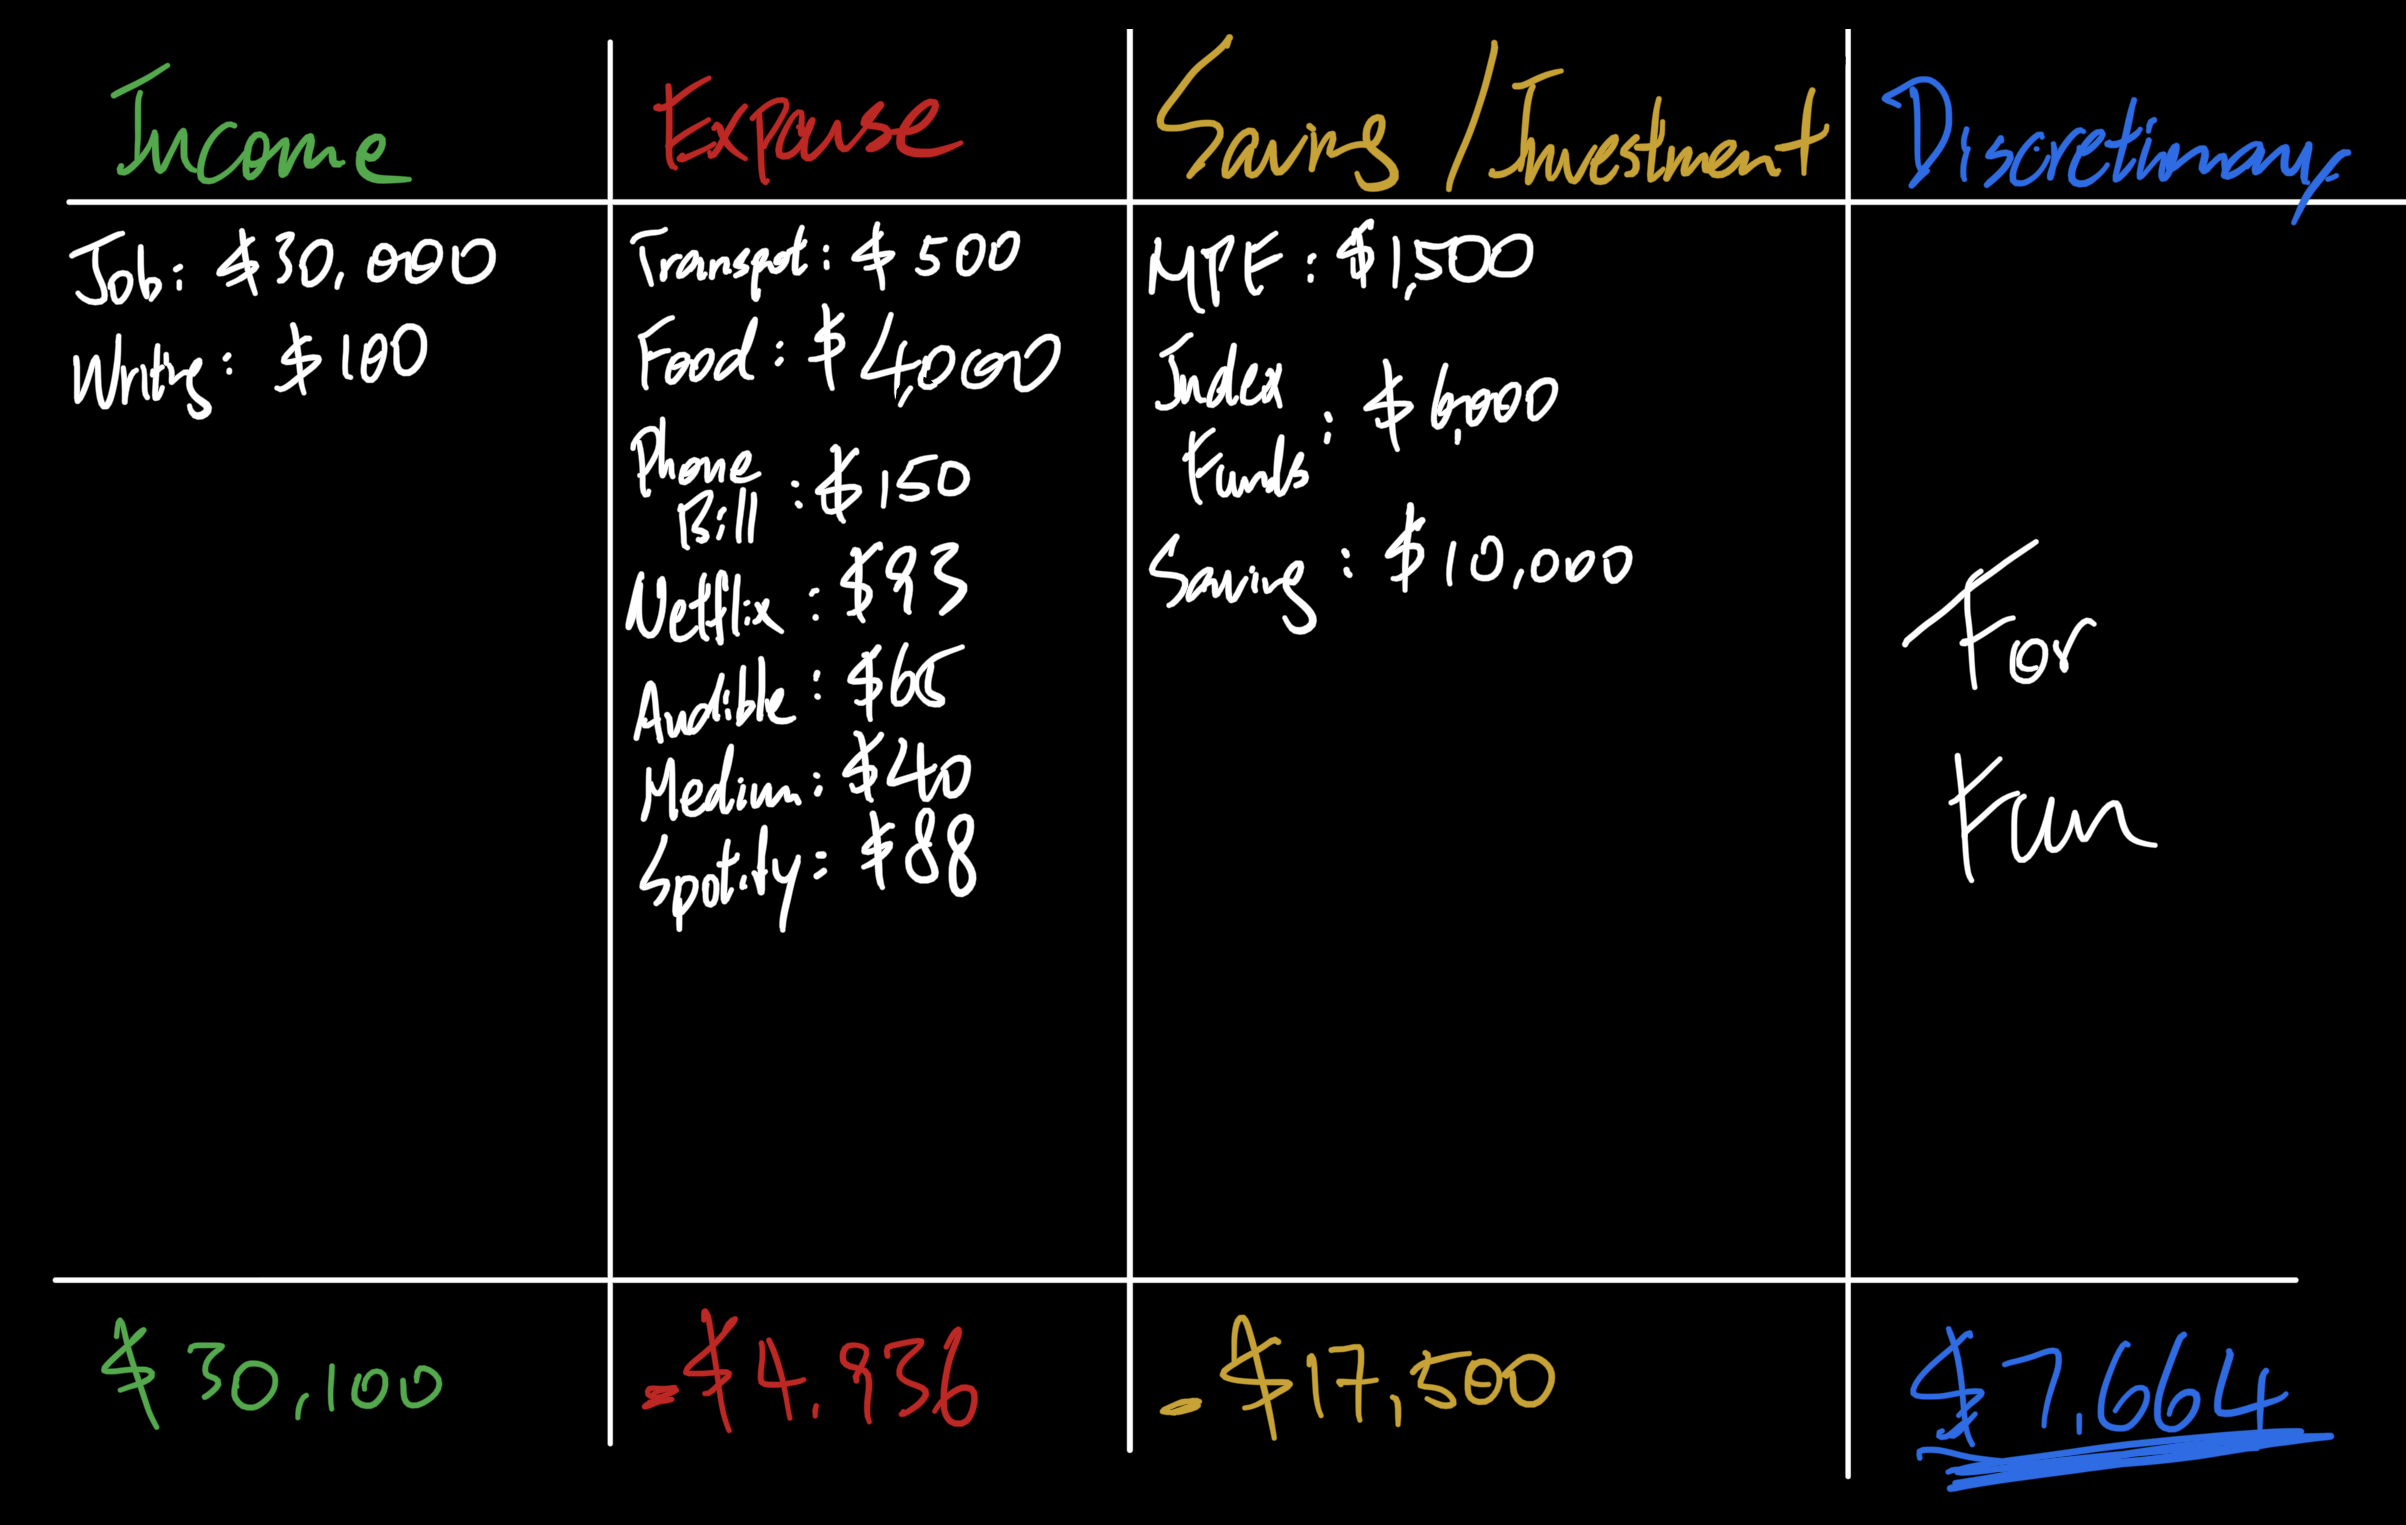 Income
Expanse
Saving / Investment
Discretionary
Job: $30,000
Writing: $100
Transpot: $500
Food: $4,000
Phone
Bill : $150
Netflix : $93
Audible : $65
Medium: $40
Spotify: $88
MPF: $1,500
Index
Funds : $6,000
Saving : $10,000
For
Fun
$30,100
-$4,936
-$17,500
$7,664